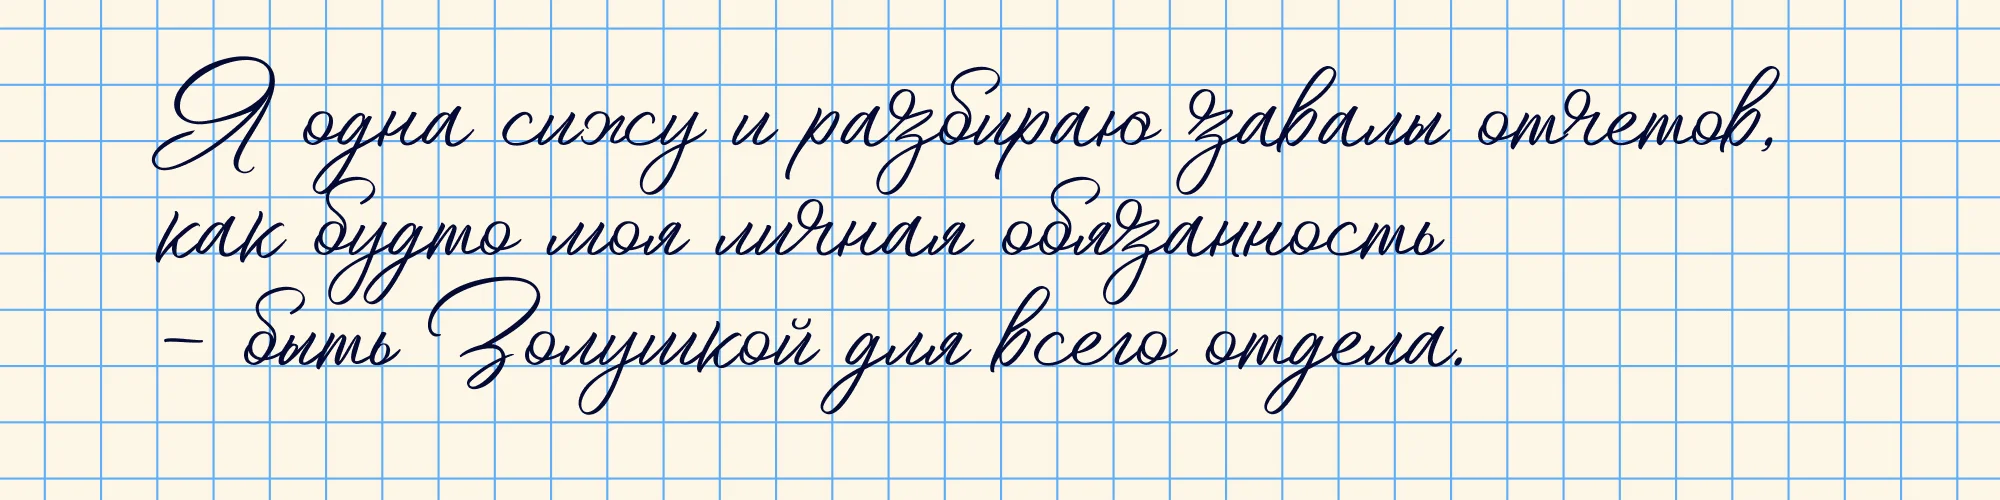 Я одна сижу и разбираю завалы отчетов,
как будто моя личная обязанность
– быть Золушкой для всего отдела.